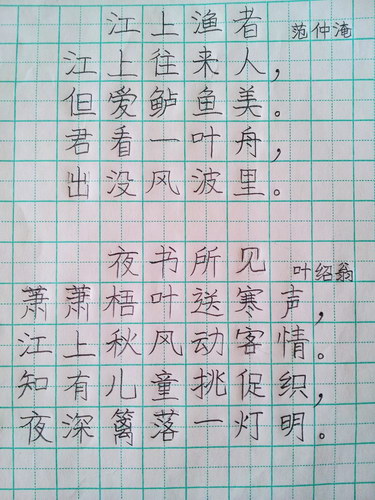 江上渔者 范仲淹
江上往来人，
但爱鲈鱼美。
君看一叶舟，
出没风波里。
夜书所见 叶绍翁
萧萧梧叶送寒声，
江上秋风动客情。
知有儿童挑促织，
夜深篱落一灯明。